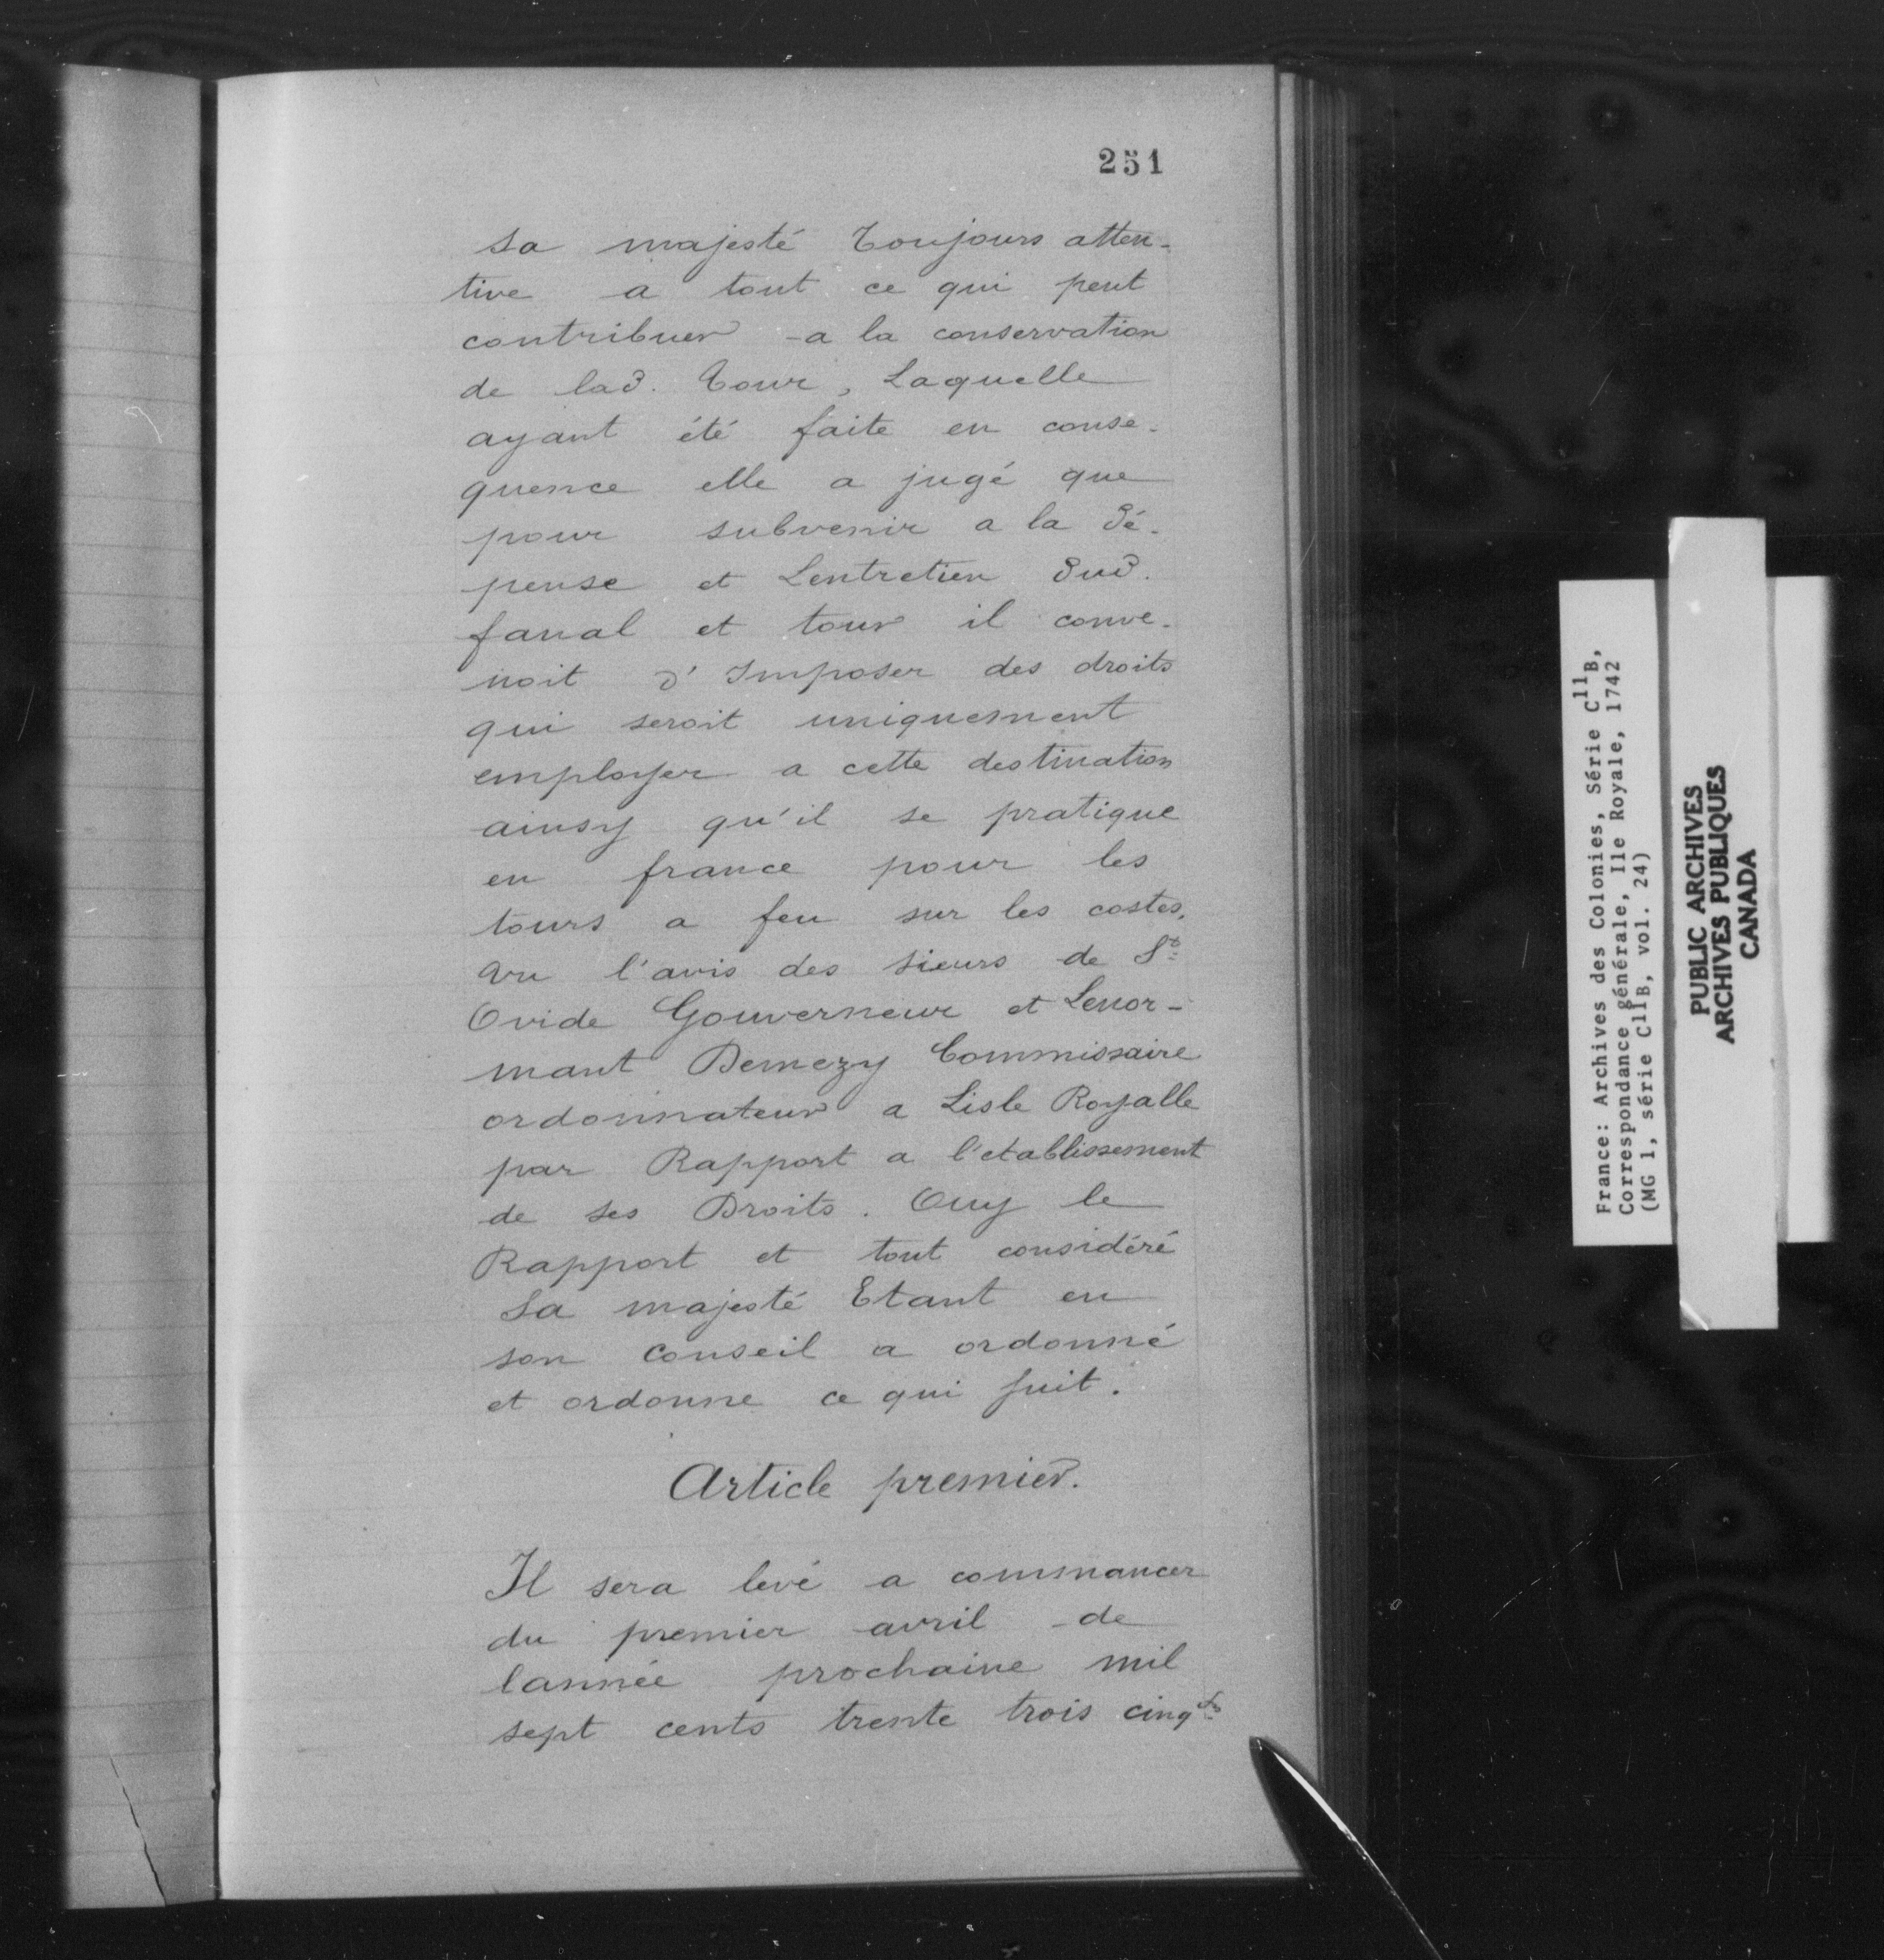 251
Sa majesté Toujours atten-
tive a tout ce qui peut
contribuer a la conservation
de lad. Tour, Laquelle
ayant été faite en conse-
quence elle a jugé que
pour subvenir a la dé-
pense et Lentretien dud.
fanal et tour il conve-
noit d'Imposer des droits
qui seroit uniquement
employer a cette destination
ainsy qu'il se pratique
en france pour les
tours a feu sur les costes,
Vu l'avis des sieurs de St
Ovide Gouverneur et Lenor-
mant Demezy Commissaire
ordonnateur a Lisle Royalle
par Rapport a l'etablissement
de ses Droits. Ouy le
Rapport et tout considéré
Sa majesté Etant en
son Conseil a ordonné
et ordonne ce qui suit.
Article premier.
Il sera levé a commancer
du premier avril de
lannée prochaine mil
sept cents trente trois cinq
France: Archives des Colonies, Série C11B,
Correspondance générale, Ile Royale, 1742
(MG 1, série C11B, vol. 24)
PUBLIC ARCHIVES
ARCHIVES PUBLIQUES
CANADA